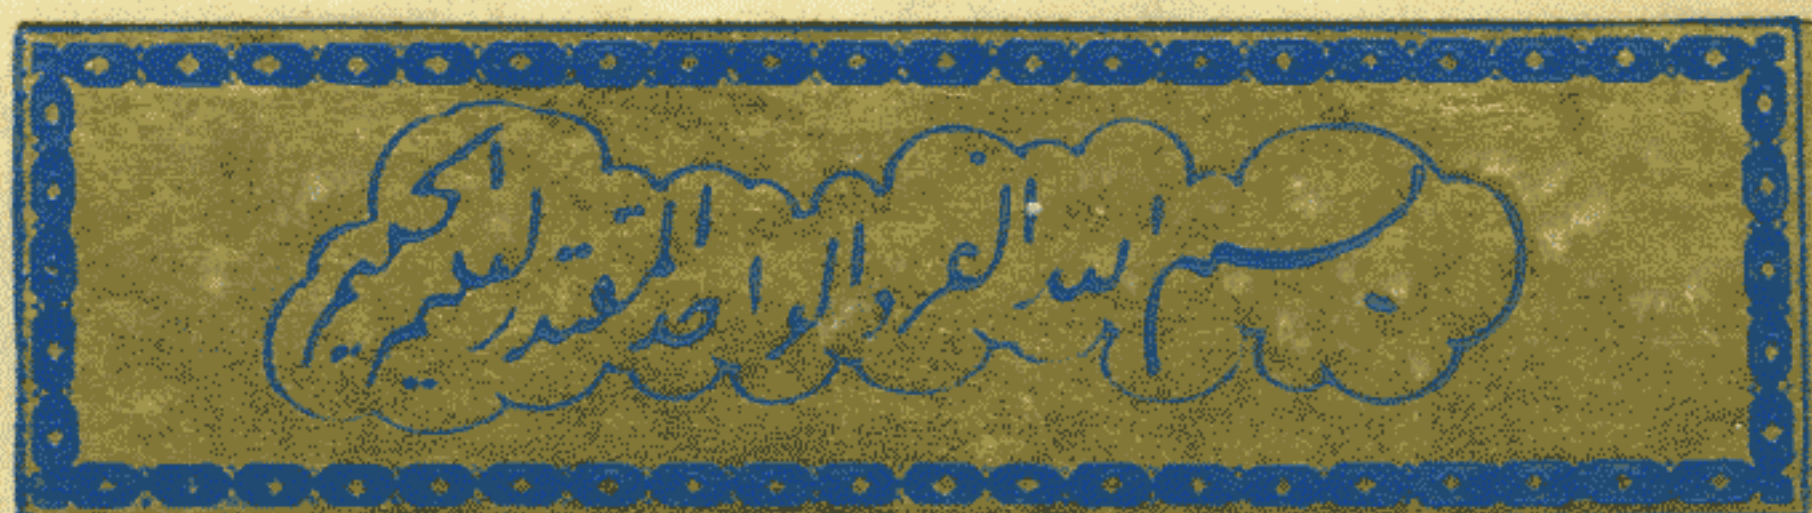 بسم الله الفرد الواحد المقتدر العليم الحكيم